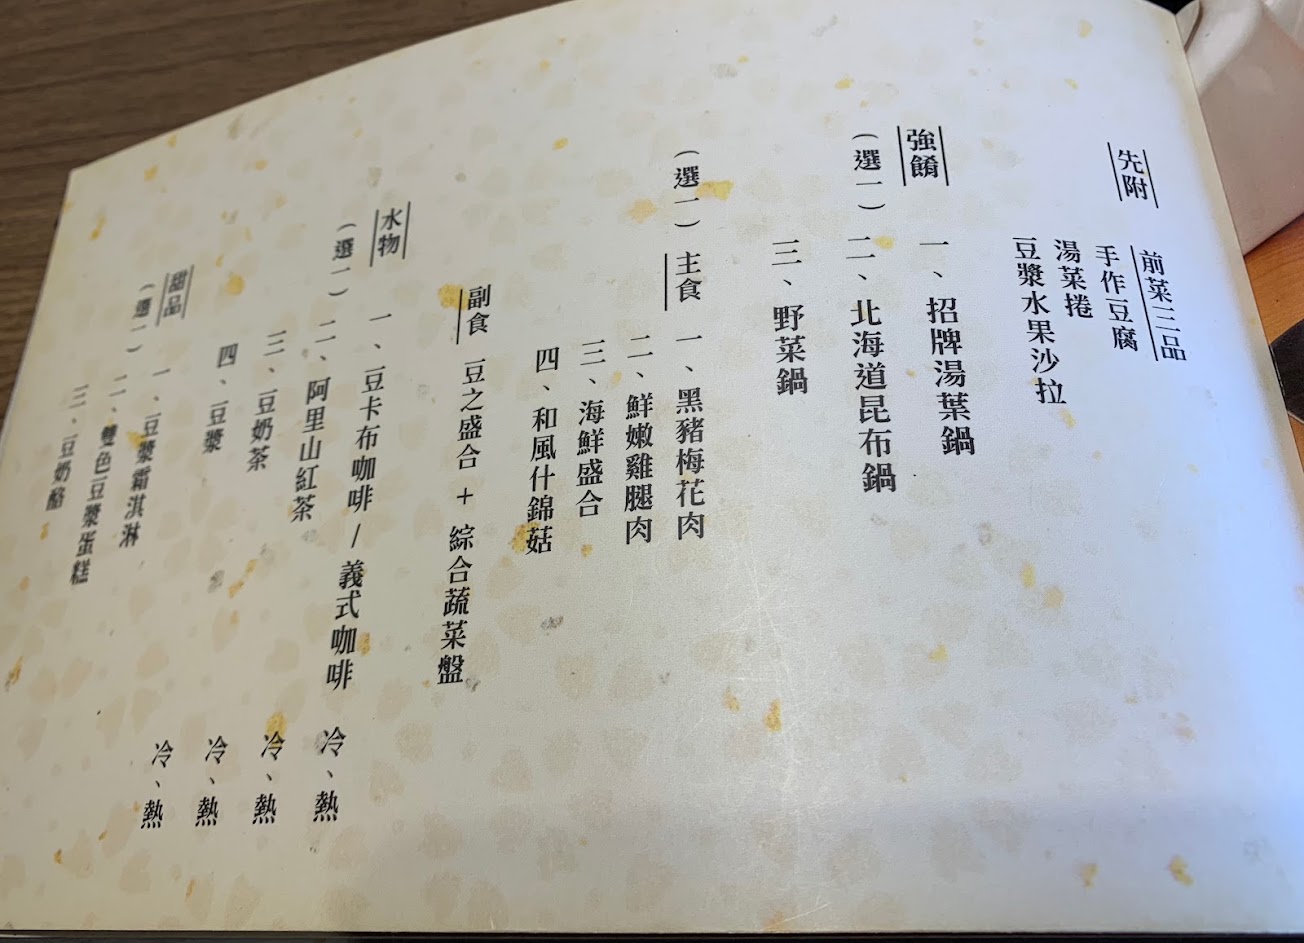 先附
前菜三品
手作豆腐
湯菜捲
豆漿水果沙拉
強餚
（選一）
一、招牌湯葉鍋
二、北海道昆布鍋
三、野菜鍋
（選一）
主食
一、黑豬梅花肉
二、鮮嫩雞腿肉
三、海鮮盛合
四、和風什錦菇
副食
豆之盛合 + 綜合蔬菜盤
水物
（選一）
一、豆卡布咖啡 / 義式咖啡 冷、熱
二、阿里山紅茶 冷、熱
三、豆奶茶 冷、熱
四、豆漿 冷、熱
甜品
（選一）
一、豆漿霜淇淋
二、雙色豆漿蛋糕
三、豆奶酪